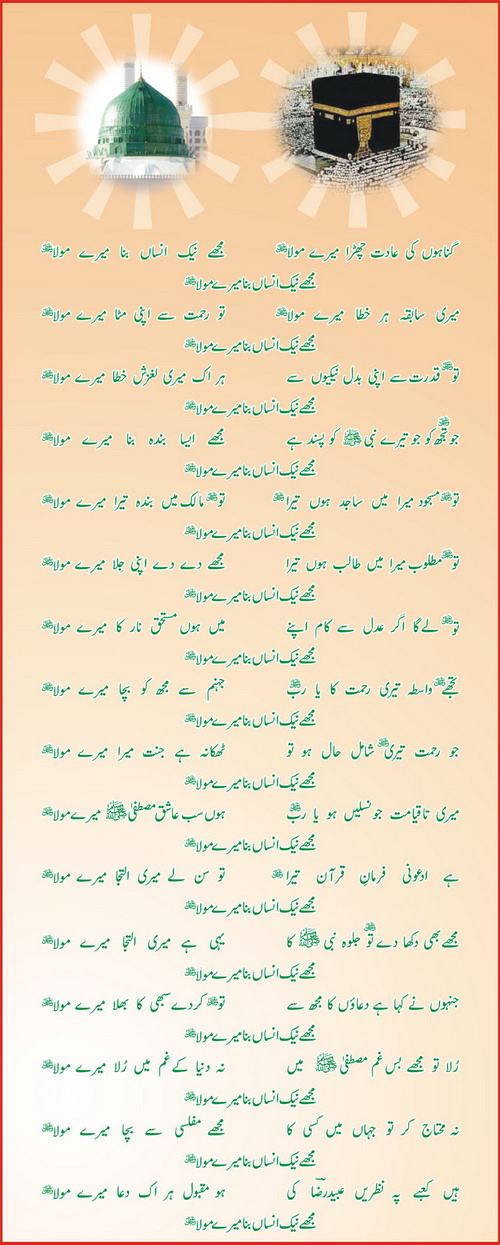 گناہوں کی عادت چھڑا میرے مولاﷻ مجھے نیک انساں بنا میرے مولاﷻ
مجھے نیک انساں بنا میرے مولاﷻ
میری سابقہ ہر خطا میرے مولاﷻ تو رحمت سے اپنی مٹا میرے مولاﷻ
مجھے نیک انساں بنا میرے مولاﷻ
توﷻ قدرت سے اپنی بدل نیکیوں سے ہر اک میری لغزش خطا میرے مولاﷻ
مجھے نیک انساں بنا میرے مولاﷻ
جو تجھﷻ کو جو تیرے نبی ﷺ کو پسند ہے مجھے ایسا بندہ بنا میرے مولاﷻ
مجھے نیک انساں بنا میرے مولاﷻ
توﷻ مسجود میرا میں ساجد ہوں تیراﷻ توﷻ مالک میں بندہ تیرا میرے مولاﷻ
مجھے نیک انساں بنا میرے مولاﷻ
توﷻ مطلوب میرا میں طالب ہوں تیرا مجھے دے دے اپنی جلا میرے مولاﷻ
مجھے نیک انساں بنا میرے مولاﷻ
توﷻ لے گا اگر عدل سے کام اپنے میں ہوں مستحق نار کا میرے مولاﷻ
مجھے نیک انساں بنا میرے مولاﷻ
تجھےﷻ واسطہ تیری رحمت کا یا ربﷻ جہنم سے مجھ کو بچا میرے مولاﷻ
مجھے نیک انساں بنا میرے مولاﷻ
جو رحمت تیریﷻ شامل حال ہو تو ٹھکانہ ہے جنت میرا میرے مولاﷻ
مجھے نیک انساں بنا میرے مولاﷻ
میری تاقیامت جو نسلیں ہو یا ربﷻ ہوں سب عاشق مصطفیٰ ﷺ میرے مولاﷻ
مجھے نیک انساں بنا میرے مولاﷻ
ہے ادعونی فرمانِ قرآن تیراﷻ تو سن لے میری التجا میرے مولاﷻ
مجھے نیک انساں بنا میرے مولاﷻ
مجھے بھی دکھا دے توﷻ جلوہ نبی ﷺ کا یہی ہے میری التجا میرے مولاﷻ
مجھے نیک انساں بنا میرے مولاﷻ
جنہوں نے کہا ہے دعاؤں کا مجھ سے توﷻ کر دے سبھی کا بھلا میرے مولاﷻ
مجھے نیک انساں بنا میرے مولاﷻ
رُلا تو مجھے بس غم مصطفیٰ ﷺ میں نہ دنیا کے غم میں رُلا میرے مولاﷻ
مجھے نیک انساں بنا میرے مولاﷻ
نہ محتاج کر تو جہاں میں کسی کا مجھے مفلسی سے بچا میرے مولاﷻ
مجھے نیک انساں بنا میرے مولاﷻ
ہیں کعبے پہ نظریں عبیدرضاؔ کی ہو مقبول ہر اک دعا میرے مولاﷻ
مجھے نیک انساں بنا میرے مولاﷻ